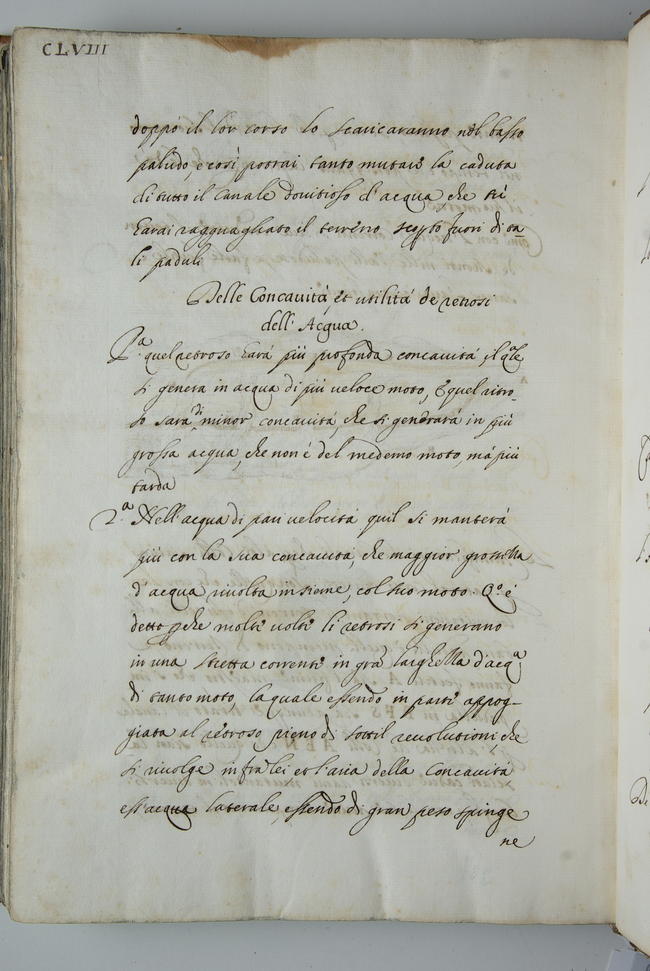 CLVIII
doppo il lor corso lo scaricaranno nel basso
palude, e così potrai tanto mutare la caduta
di tutto il Canale dovitioso d'acqua, che tu
harai ragguagliato il terreno scoperto fuori di ta
li paduli
Delle Concavità, et utilità de retrosi
dell'Acqua.
P.ª quel retroso hará più profonda concavitá, il q.le
si genera in acqua di più veloce moto, E quel retro-
so sará di minor concavitá, che si generará in più
grossa acqua, che non é del medemo moto, má più
tarda
2.ª Nell'acqua di pari velocitá quel si manterá
più con la sua concavitá, che maggior grossezza
d'acqua rivolta insieme, col suo moto. Q.º é
detto perche molte volte li retrosi si generano
in una stretta corrente in grã larghezza d'acq.ª
di tanto moto, la quale essendo in parte appog-
giata al retroso pieno di sottil revolutioni, che
si rivolge infra lei et l'aria della Concavitá
ess'acqua laterale, essendo di gran peso spinge
ne